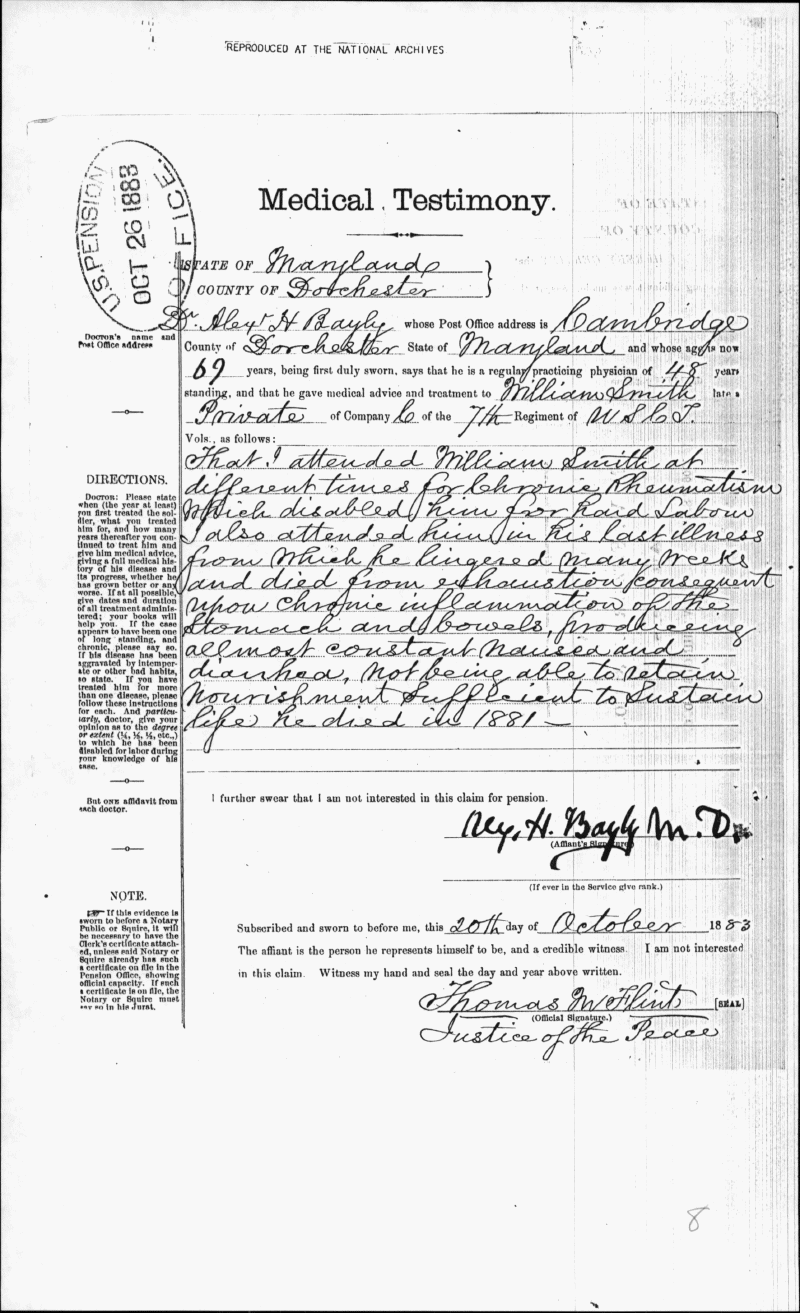 REPRODUCED AT THE NATIONAL ARCHIVES
U.S. PENSION OFFICE.
OCT 26 1883
Medical Testimony.
STATE OF Maryland
COUNTY OF Dorchester
Doctor's name and
Post Office address
Dr. Alexr H Bayly whose Post Office address is Cambridge
County of Dorchester State of Maryland and whose age is now
69 years, being first duly sworn, says that he is a regular practicing physician of 48 years
standing, and that he gave medical advice and treatment to William Smith late a
Private of Company C of the 7th Regiment of U S C T.
Vols., as follows:
That I attended William Smith at
different times for Chronic Rheumatism
Which disabled him for hard Labour
I also attended him in his last illness
from which he lingered many weeks
and died from exhaustion consequent
upon chronic inflammation of the
Stomach and bowels, produceing
allmost constant nausea and
diarrhea, not being able to retain
Nourishment Sufficient to Sustain
life he died in 1881 —
DIRECTIONS.
DOCTOR: Please state
when (the year at least)
you first treated the sol-
dier, what you treated
him for, and how many
years thereafter you con-
tinued to treat him and
give him medical advice,
giving a full medical his-
tory of his disease and
its progress, whether he
has grown better or any
worse. If at all possible,
give dates and duration
of all treatment adminis-
tered; your books will
help you. If the case
appears to have been one
of long standing, and
chronic, please say so.
If his disease has been
aggravated by intemper-
ate or other bad habits,
so state. If you have
treated him for more
than one disease, please
follow these instructions
for each. And particu-
larly, doctor, give your
opinion as to the degree
or extent (¼, ⅓, ½, etc.,)
to which he has been
disabled for labor during
your knowledge of his
case.
But ONE affidavit from
each doctor.
I further swear that I am not interested in this claim for pension.
Alex. H. Bayly M. D.
(Affiant's Signature)
(If ever in the Service give rank.)
NOTE.
If this evidence is
sworn to before a Notary
Public or Squire, it will
be necessary to have the
Clerk's certificate attach-
ed, unless said Notary or
Squire already has such
a certificate on file in the
Pension Office, showing
official capacity. If such
a certificate is on file, the
Notary or Squire must
say so in his Jurat.
Subscribed and sworn to before me, this 20th day of October 1883
The affiant is the person he represents himself to be, and a credible witness. I am not interested
in this claim. Witness my hand and seal the day and year above written.
Thomas M Flint [SEAL]
(Official Signature.)
Justice of the Peace
8